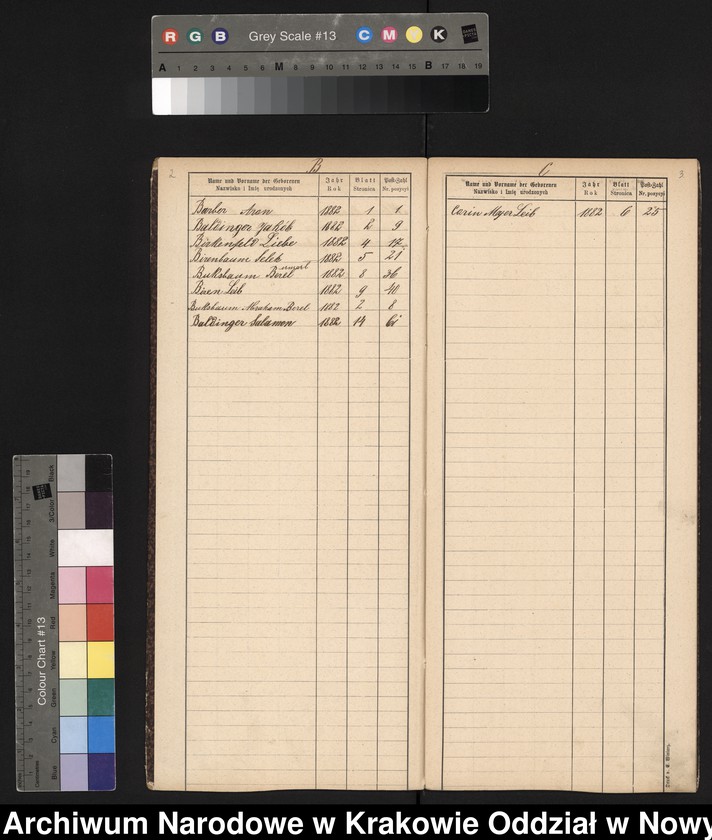 R G B Grey Scale #13 C M Y K
A 1 2 3 4 5 6 M 8 9 10 11 12 13 14 15 B 17 18 19
2
B
Name und Vorname der Geborenen Jahr Blatt Post-Zahl
Nazwisko i Imię urodzonych Rok Stronica Nr. pozycyi
Barber Aron 1882 1 1
Baldinger Jakób 1882 2 9
Birkenfeld Liebe 1882 4 17
Birenbaum Selek 1882 5 21
Buksbaum Berel 1882 8 36
Biren Leib 1882 9 40
Buksbaum Abraham Berel 1882 2 8
Baldinger Salamon 1882 14 61
C
3
Name und Vorname der Geborenen Jahr Blatt Post-Zahl
Nazwisko i Imię urodzonych Rok Stronica Nr. pozycyi
Carin Mayer Leib 1882 6 25
Colour Chart #13
Blue Cyan Green Yellow Red Magenta White 3/Color Black
Archiwum Narodowe w Krakowie Oddział w Nowy